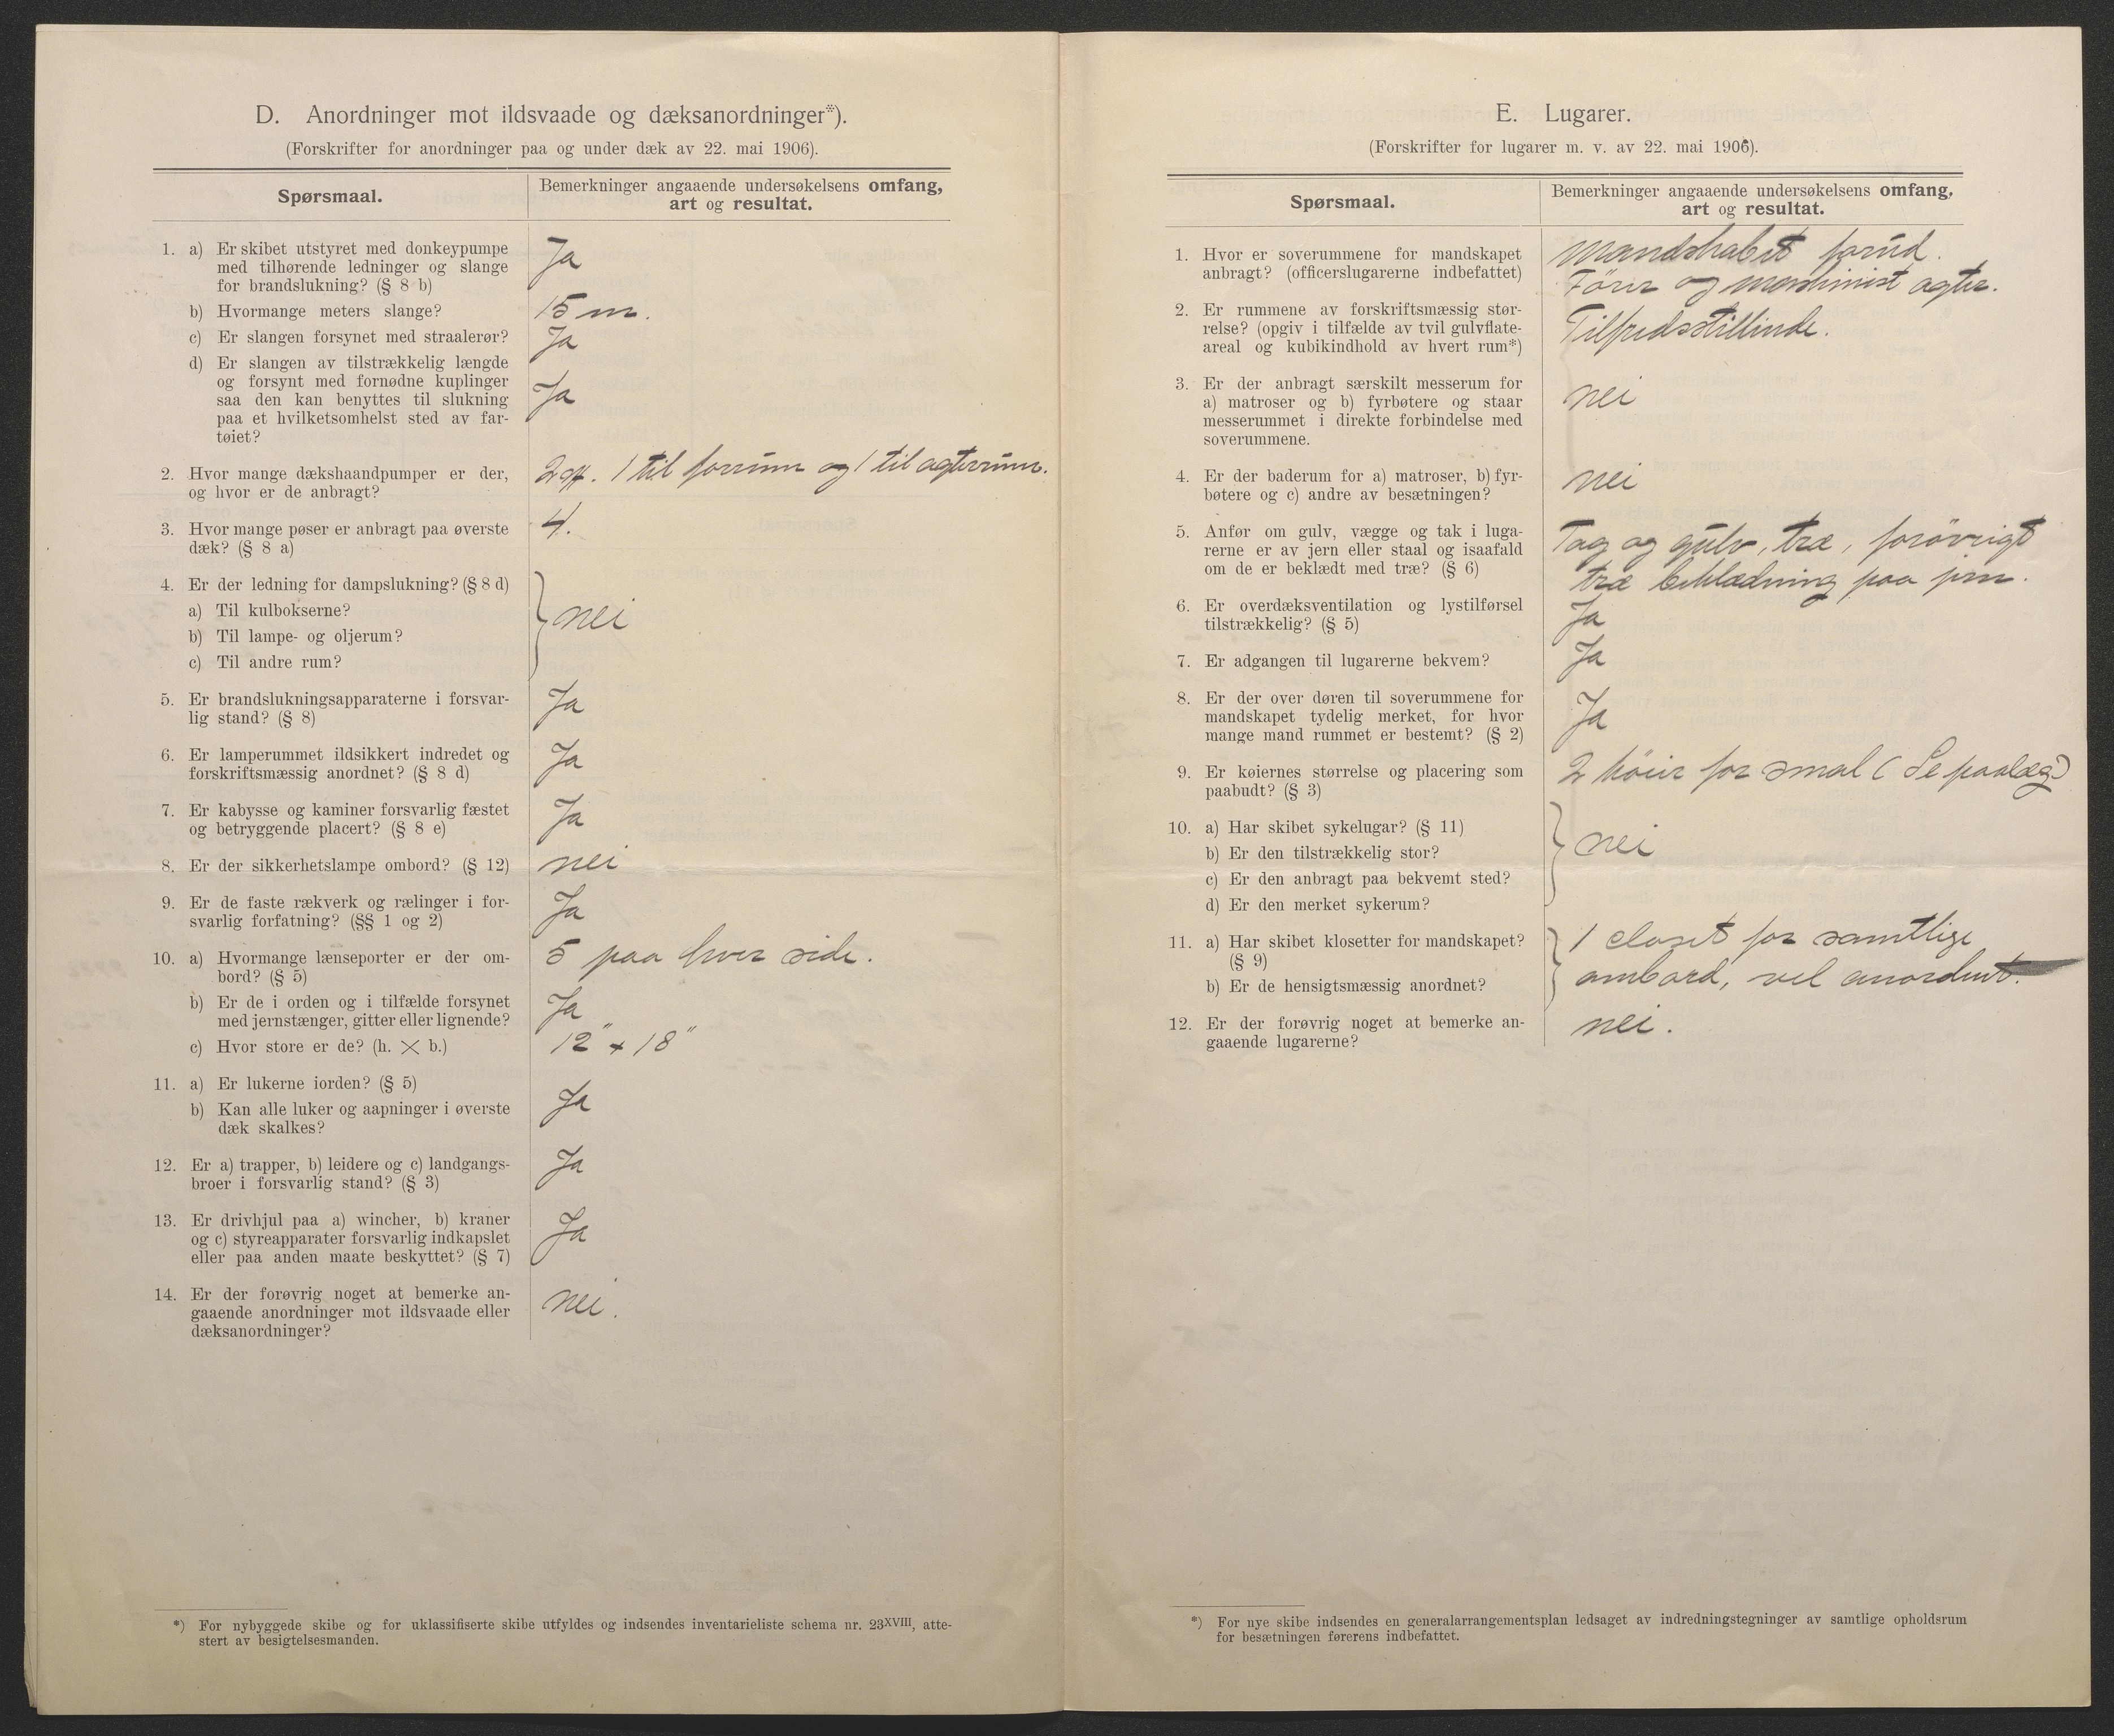 D. Anordninger mot ildsvaade og dæksanordninger*).
(Forskrifter for anordninger paa og under dæk av 22. mai 1906).
Spørsmaal.
Bemerkninger angaaende undersøkelsens omfang,
art og resultat.
1. a) Er skibet utstyret med donkeypumpe
med tilhørende ledninger og slange
for brandslukning? (§ 8 b)
Ja
b) Hvormange meters slange?
15 m.
c) Er slangen forsynet med straalerør?
Ja
d) Er slangen av tilstrækkelig længde
og forsynt med fornødne kuplinger
saa den kan benyttes til slukning
paa et hvilketsomhelst sted av far-
tøiet?
Ja
2. Hvor mange dækshaandpumper er der,
og hvor er de anbragt?
2 st. 1 til forrum og 1 til agterrum.
3. Hvor mange pøser er anbragt paa øverste
dæk? (§ 8 a)
4.
4. Er der ledning for dampslukning? (§ 8 d)
a) Til kulbokserne?
b) Til lampe- og oljerum?
c) Til andre rum?
nei
5. Er brandslukningsapparaterne i forsvar-
lig stand? (§ 8)
Ja
6. Er lamperummet ildsikkert indredet og
forskriftsmæssig anordnet? (§ 8 d)
Ja
7. Er kabysse og kaminer forsvarlig fæstet
og betryggende placert? (§ 8 e)
Ja
8. Er der sikkerhetslampe ombord? (§ 12)
nei
9. Er de faste rækverk og rælinger i for-
svarlig forfatning? (§§ 1 og 2)
Ja
10. a) Hvormange lænseporter er der om-
bord? (§ 5)
5 paa hver side.
b) Er de i orden og i tilfælde forsynet
med jernstænger, gitter eller lignende?
Ja
c) Hvor store er de? (h. × b.)
12" + 18"
11. a) Er lukerne iorden? (§ 5)
b) Kan alle luker og aapninger i øverste
dæk skalkes?
Ja
12. Er a) trapper, b) leidere og c) landgangs-
broer i forsvarlig stand? (§ 3)
Ja
13. Er drivhjul paa a) wincher, b) kraner
og c) styreapparater forsvarlig indkapslet
eller paa anden maate beskyttet? (§ 7)
Ja
14. Er der forøvrig noget at bemerke an-
gaaende anordninger mot ildsvaade eller
dæksanordninger?
nei.
*) For nybyggede skibe og for uklassifiserte skibe utfyldes og indsendes inventarieliste schema nr. 23XVIII, atte-
stert av besigtelsesmanden.
E. Lugarer.
(Forskrifter for lugarer m. v. av 22. mai 1906).
Spørsmaal.
Bemerkninger angaaende undersøkelsens omfang,
art og resultat.
1. Hvor er soverummene for mandskapet
anbragt? (officerslugarerne indbefattet)
Mandskabet forud.
Förer og maskinist agter.
2. Er rummene av forskriftsmæssig stør-
relse? (opgiv i tilfælde av tvil gulvflate-
areal og kubikindhold av hvert rum*)
Tilfredsstillende.
3. Er der anbragt særskilt messerum for
a) matroser og b) fyrbøtere og staar
messerummet i direkte forbindelse med
soverummene.
nei
4. Er der baderum for a) matroser, b) fyr-
bøtere og c) andre av besætningen?
nei
5. Anfør om gulv, vægge og tak i luga-
rerne er av jern eller staal og isaafald
om de er beklædt med træ? (§ 6)
Tag og gulv, træ, forövrigt
træ beklædning paa jern.
6. Er overdæksventilation og lystilførsel
tilstrækkelig? (§ 5)
Ja
7. Er adgangen til lugarerne bekvem?
Ja
8. Er der over døren til soverummene for
mandskapet tydelig merket, for hvor
mange mand rummet er bestemt? (§ 2)
Ja
9. Er køiernes størrelse og placering som
paabudt? (§ 3)
2 köier for smal (Se paalæg)
10. a) Har skibet sykelugar? (§ 11)
b) Er den tilstrækkelig stor?
c) Er den anbragt paa bekvemt sted?
d) Er den merket sykerum?
nei
11. a) Har skibet klosetter for mandskapet?
(§ 9)
b) Er de hensigtsmæssig anordnet?
1 closet for samtlige
ombord, vel anordnet.
12. Er der forøvrig noget at bemerke an-
gaaende lugarerne?
nei.
*) For nye skibe indsendes en generalarrangementsplan ledsaget av indredningstegninger av samtlige opholdsrum
for besætningen førerens indbefattet.